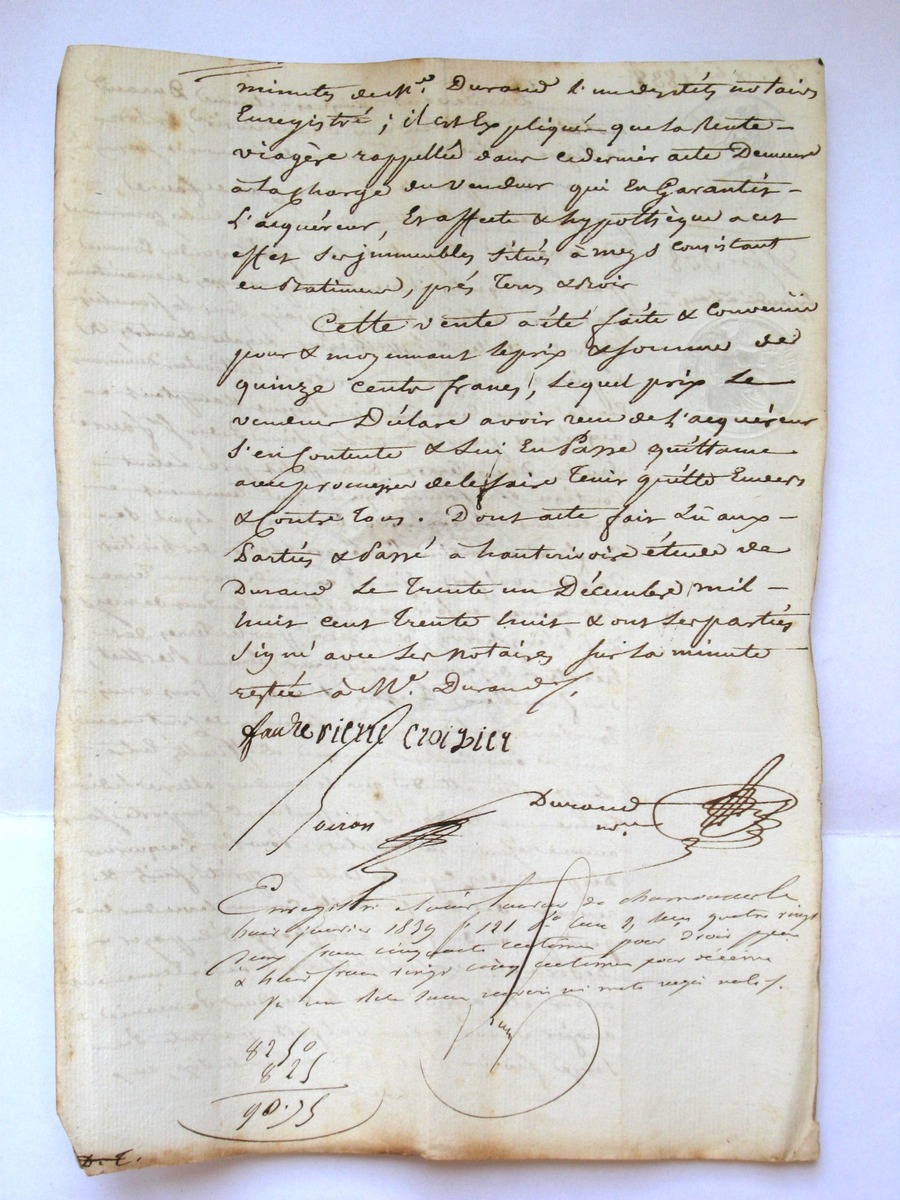 minutes de Me. Durand l'un desdits notaires
Enregistré ; il est Expliqué que la Rente
viagère rappellée dans ce dernier acte Demeure
à la charge du vendeur qui En Garantit
L'acquéreur, Et affecte & hypothèque a cet
effet ses immeubles situés à meys consistant
en Batiments, prés Terres &
Cette vente a été faite & convenüe
pour & moyennant le prix & somme de
quinze cents francs, Lequel prix Le
vendeur Déclare avoir reçu de L'acquéreur
s'en Contente & Lui En Passe quittance
avec promesse de le faire Tenir quitte Envers
& Contre Tous. Dont acte fait Lû aux
Parties & Passé à hauterivoire étude de
Durand Le Trente un Décembre mil
huit cent Trente huit & ont Les parties
signé avec Les notaires sur La minute
restée à Me. Durand
faure pierre croizier
Durand
nre
Coiron
Enregistré à Saint Laurent de chamousset le
huit janvier 1839 fo 121 quatre vingt
deux francs cinquante centimes pour droit
& huit francs vingt cinq centimes pour décime
8250
825
90.75
D. E.